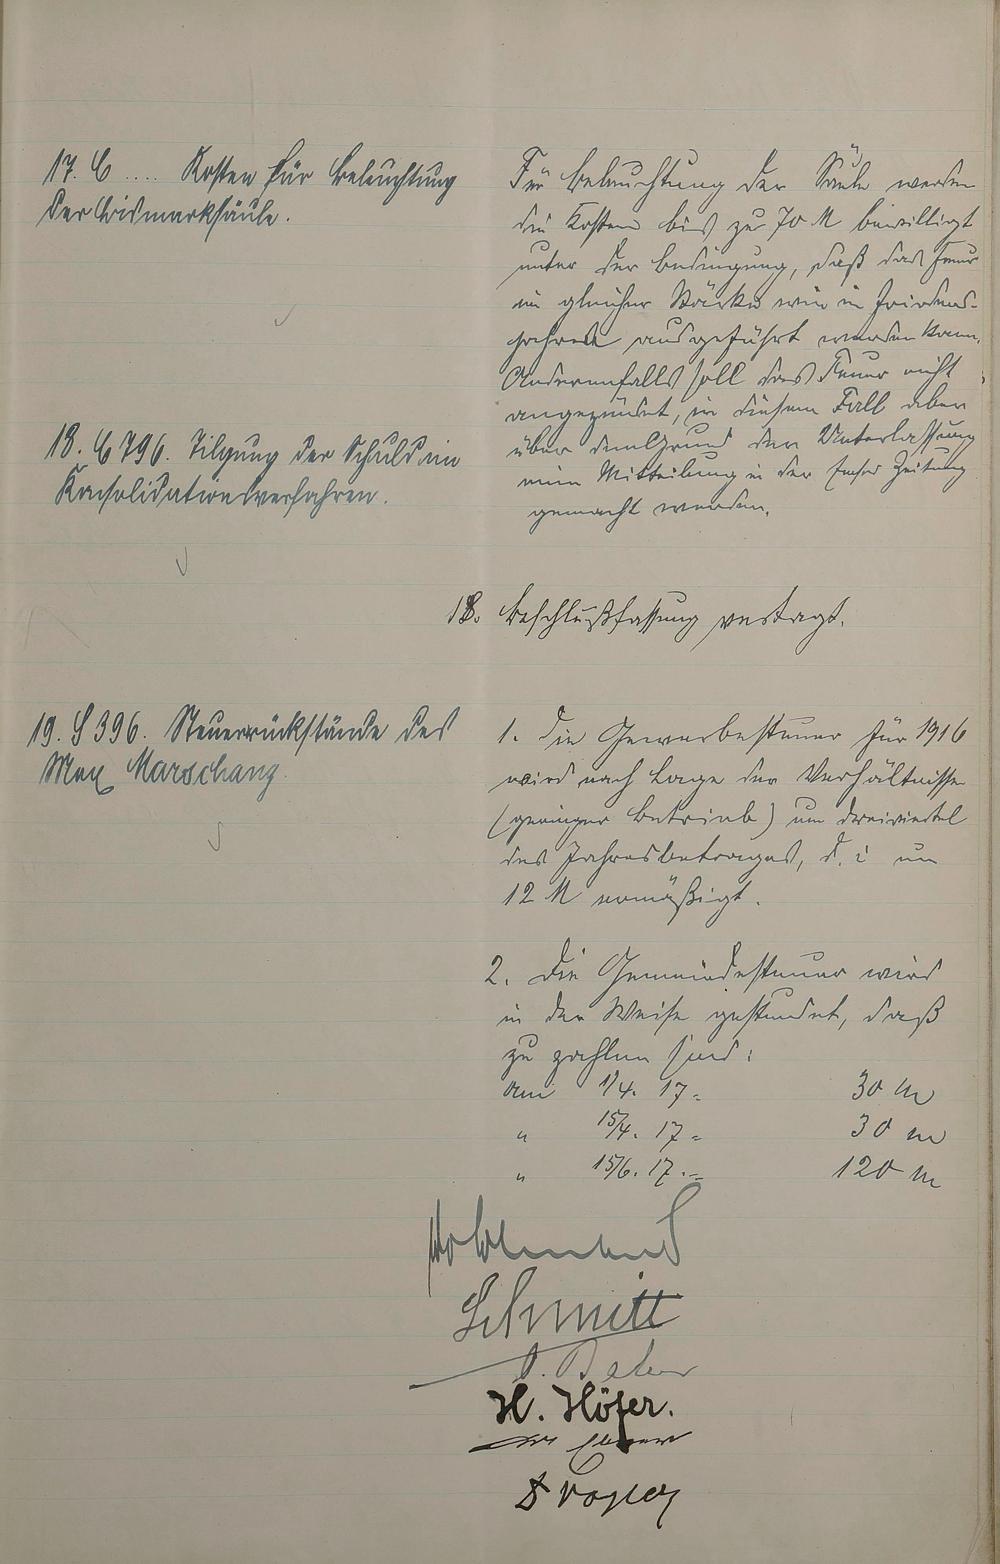 17. C .... Kosten für Beleuchtung
der Bismarksäule.
Für Beleuchtung der Säule werden
die Kosten bis zu 70 M bewilligt
unter der Bedingung, daß das Feuer
in gleicher Stärke wie in Friedens-
jahren ausgeführt werden kann.
Anderenfalls soll das Feuer nicht
angezündet, in diesem Fall aber
über den Grund der Unterlassung
eine Mitteilung in der Emser Zeitung
gemacht werden.
18. C 796. Tilgung der Schuld im
Konsolidationsverfahren.
18. Beschlußfassung vertagt.
19. S 396. Steuerrückstände des
Max Marschang.
1. Die Gewerbesteuer für 1916
wird nach Lage der Verhältnisse
(geringer Betrieb) um dreiviertel
des Jahresbetrages, d. i um
12 M ermäßigt.
2. Die Gemeindesteuer wird
in der Weise gestundet, daß
zu zahlen sind:
am 1/4. 17.= 30 M
" 15/4. 17 = 30 M
" 15/6. 17.= 120 M
Schmitt
H. Höfer.